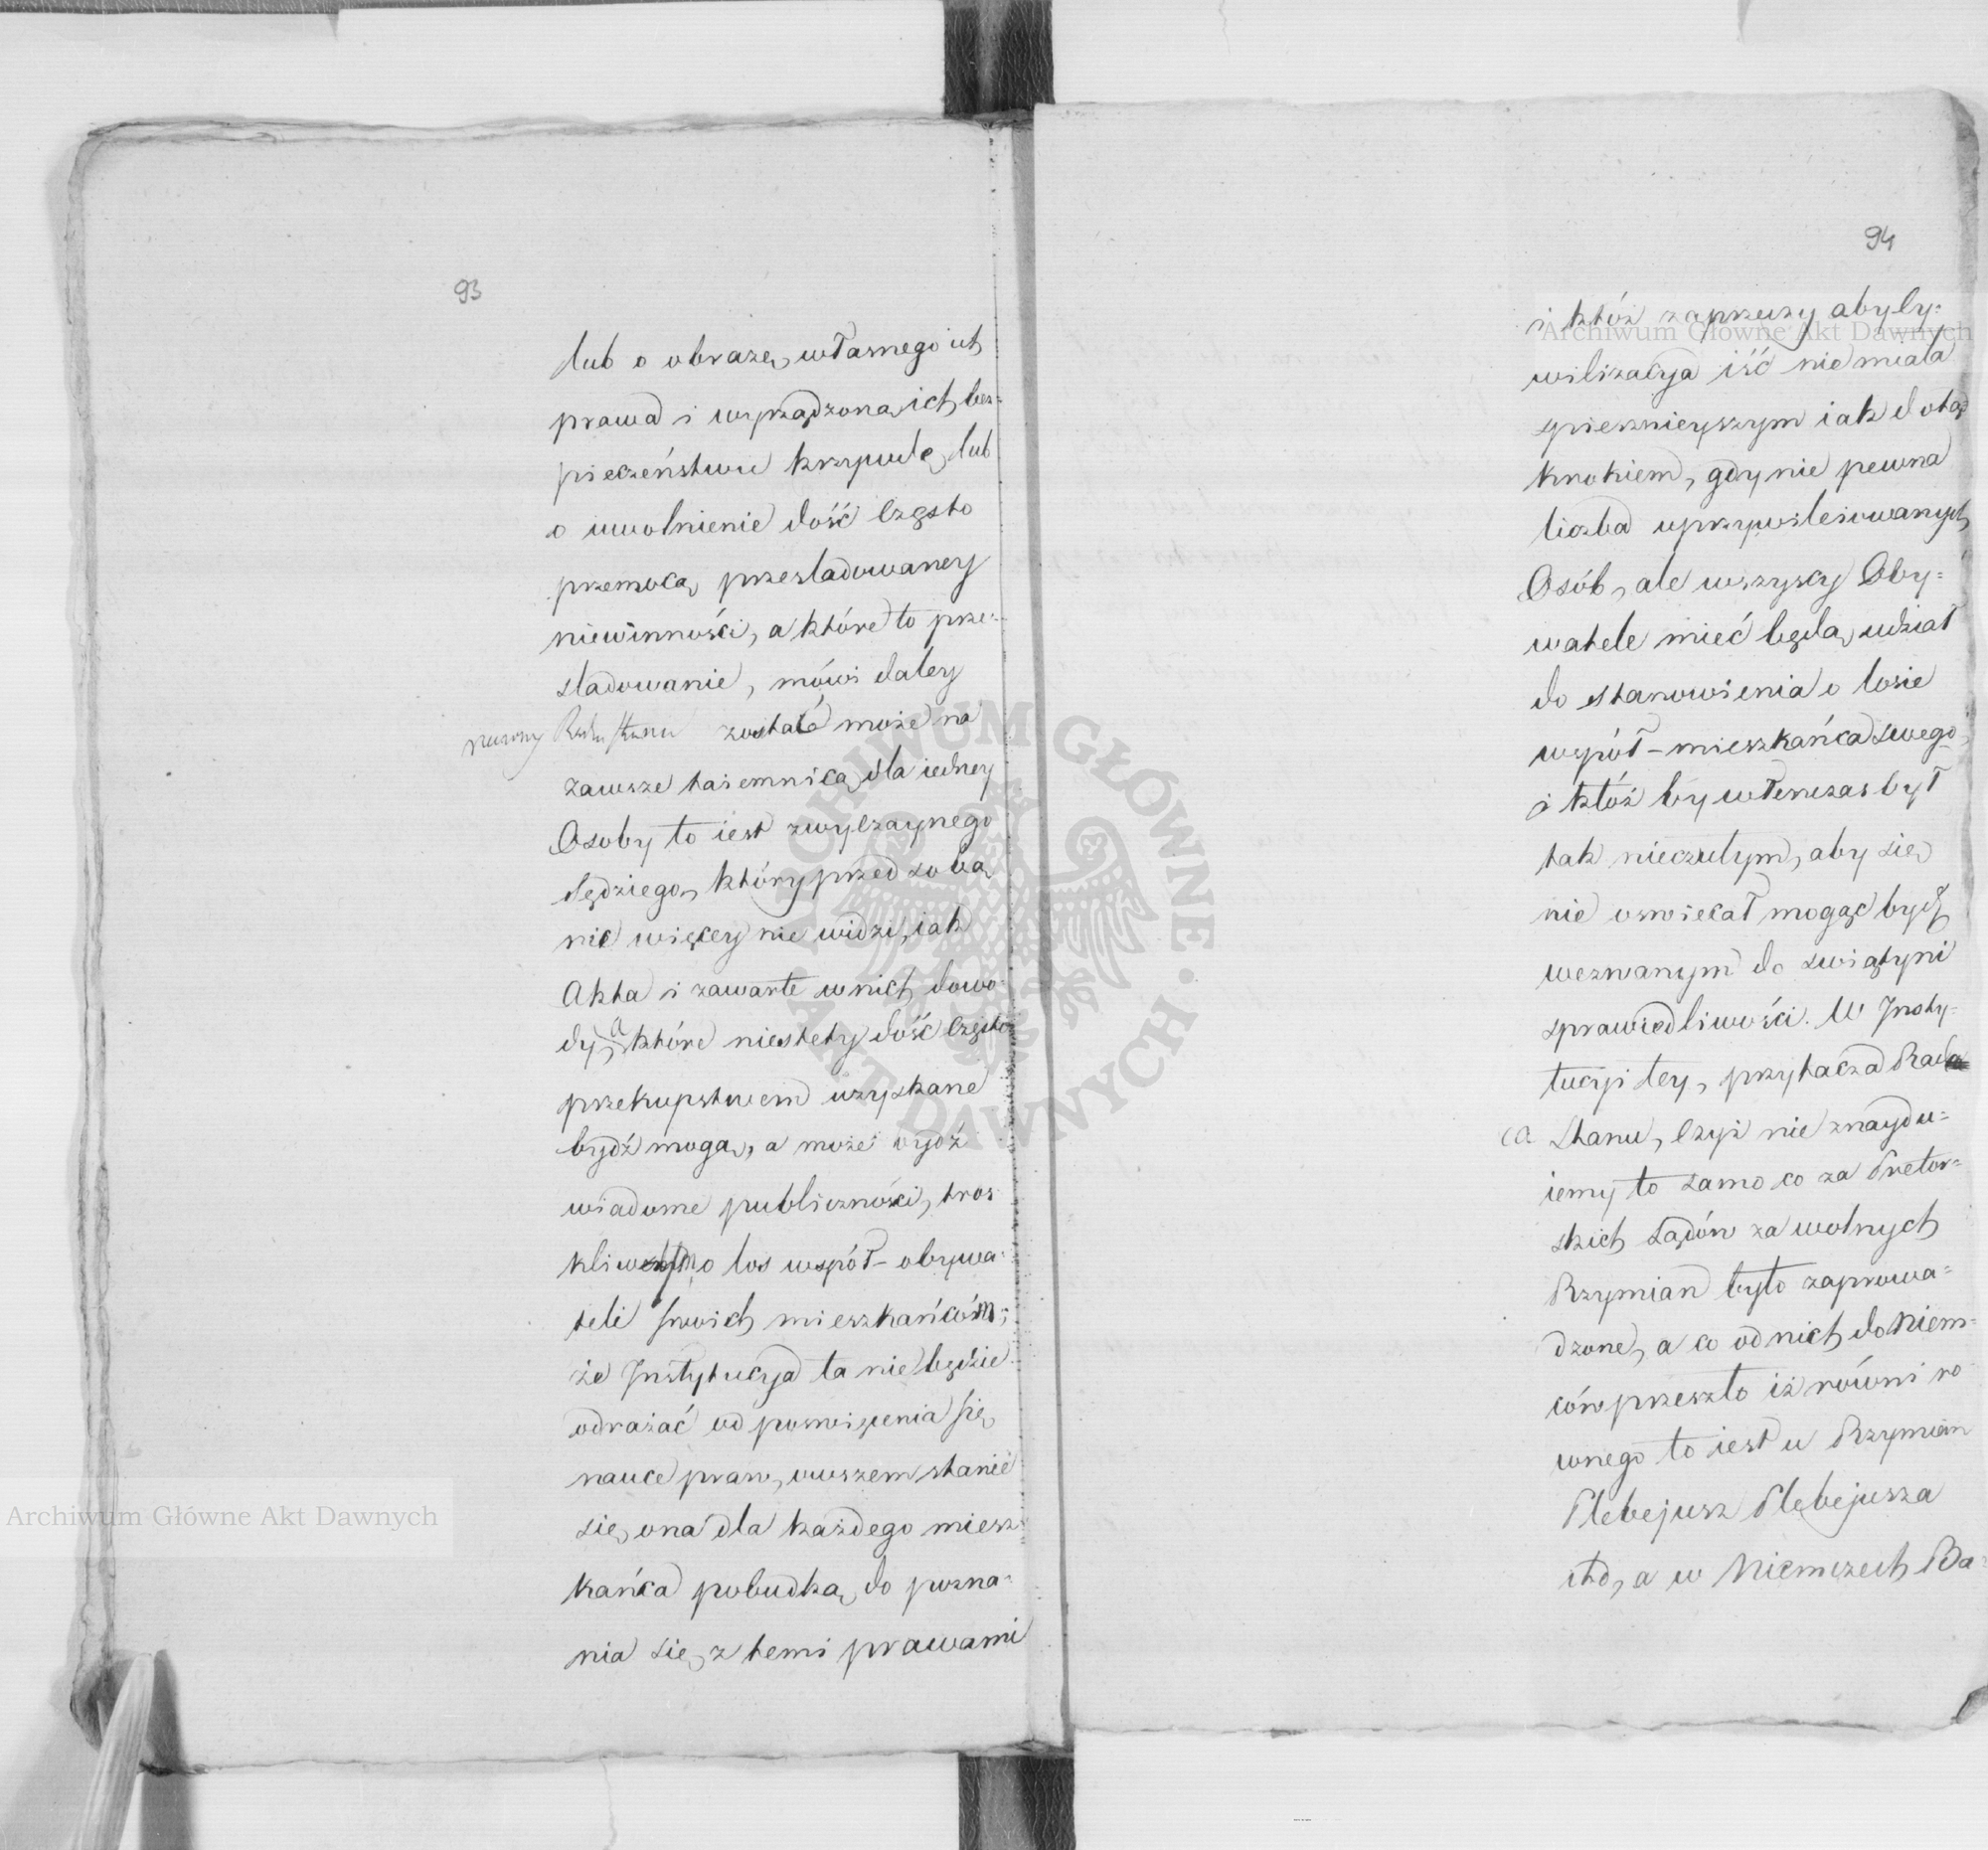 93
lub o obrazę własnego ich
prawa i wyrządzoną ich bez-
pieczeństwu krzywdę, lub
o uwolnienie dość często
przemocą prześladowaney
niewinności, a które to prze-
sladowanie, mówi daley
Rada Stanu zostać może na
zawsze taiemnicą dla iedney
Osoby to iest zwyczaynego
Sędziego, który przed sobą
nic więcey nie widzi, iak
Akta i zawarte w nich dowo-
dy, a które niestety dość często
przekupstwem uzyskane
bydź mogą, a może bydź
wiadome publiczności, tros
o los współ-obywa-
teli swoich mieszkańcom;
że Instytucya ta nie będzie
odrażać od poswięcenia się
nauce praw, owszem stanie
się ona dla każdego miesz-
kańca pobudką do pozna-
nia się z temi prawami
94
i któż zaprzeczy aby Cy-
wilizacya iść nie miała
spiesznieyszym iak dotąd
krokiem, gdy nie pewna
liczba uprzywileiowanych
Osób, ale wszyscy Oby-
watele mieć będą udział
do stanowienia o losie
współ-mieszkańca swego,
i któż by wtenczas był
tak nieczułym, aby się
nie oswiecał mogąc bydź
wezwanym do swiątyni
sprawiedliwości. W Insty-
tucyi tey, przytacza Rada
Stanu, czyż nie znaydu-
iemy to samo co za Pretor-
skich Sądów za wolnych
Rzymian było zaprowa-
dzone, a co od nich do Niem-
ców przeszło iż równi ró
wnego to iest u Rzymian
Plebejusz Plebejusza
itd, a w Niemczech Ba-
Archiwum Główne Akt Dawnych
Archiwum Główne Akt Dawnych
ARCHIWUM GŁÓWNE AKT DAWNYCH